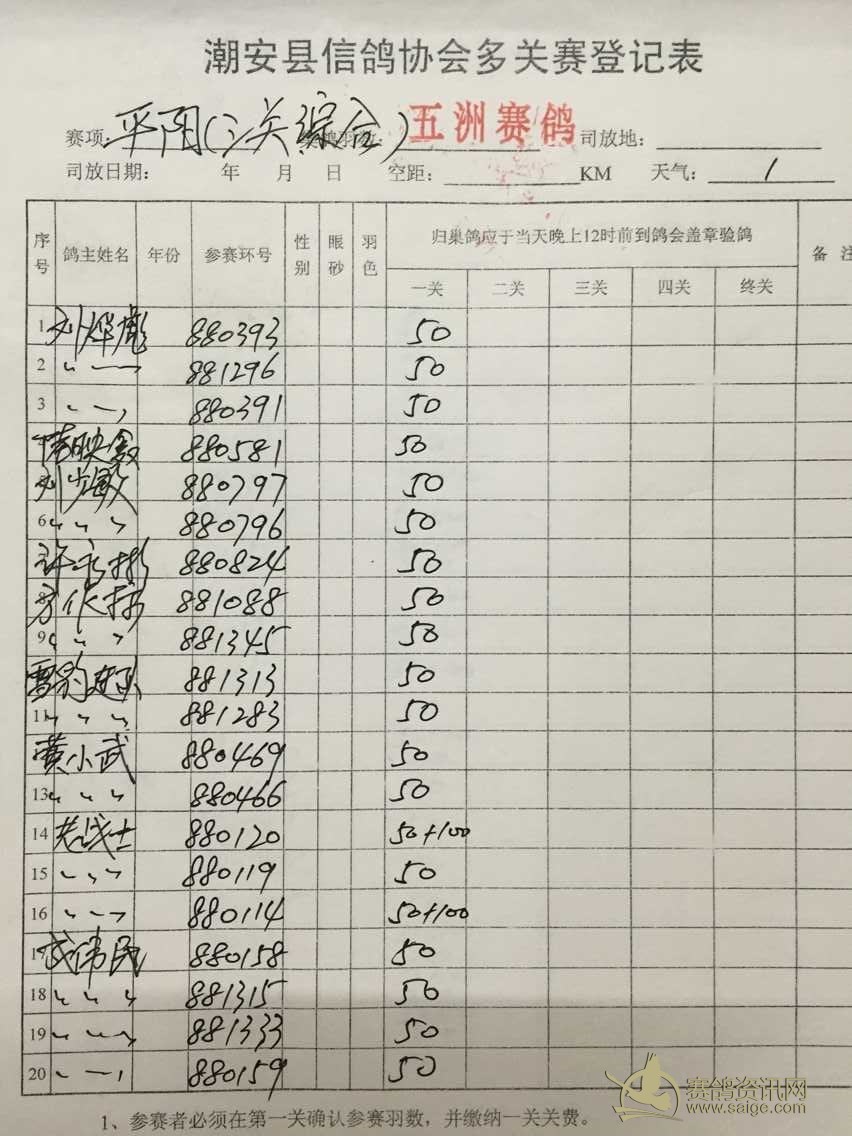 潮安县信鸽协会多关赛登记表
赛项: 平阳(三关综合) 羽数: 五洲赛鸽 司放地:
司放日期: 年 月 日 空距: KM 天气: 1
序号 鸽主姓名 年份 参赛环号 性别 眼砂 羽色 归巢鸽应于当天晚上12时前到鸽会盖章验鸽 备注
一关 二关 三关 四关 终关
1 刘烨彪 880393 50
2 〃 一 〃 881296 50
3 〃 一 〃 880391 50
陈映 880581 50
刘少敏 880797 50
6 〃 〃 〃 880796 50
许永彬 880824 50
8 方 881088 50
9 〃 〃 〃 881345 50
雪豹赛队 881313 50
11 〃 〃 〃 881283 50
黄小武 880469 50
13 〃 〃 〃 880466 50
14 老战士 880120 50+100
15 〃 〃 〃 880119 50
16 〃 〃 〃 880114 50+100
17 成伟民 880158 50
18 〃 〃 〃 881315 50
19 〃 〃 〃 881333 50
20 〃 一 〃 880159 50
1、参赛者必须在第一关确认参赛羽数，并缴纳一关关费。
赛鸽资讯网
www.saige.com